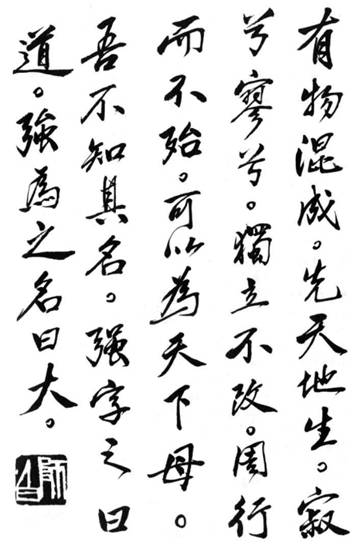 有物混成。先天地生。寂
兮寥兮。獨立不改。周行
而不殆。可以為天下母。
吾不知其名。强字之曰
道。強為之名曰大。